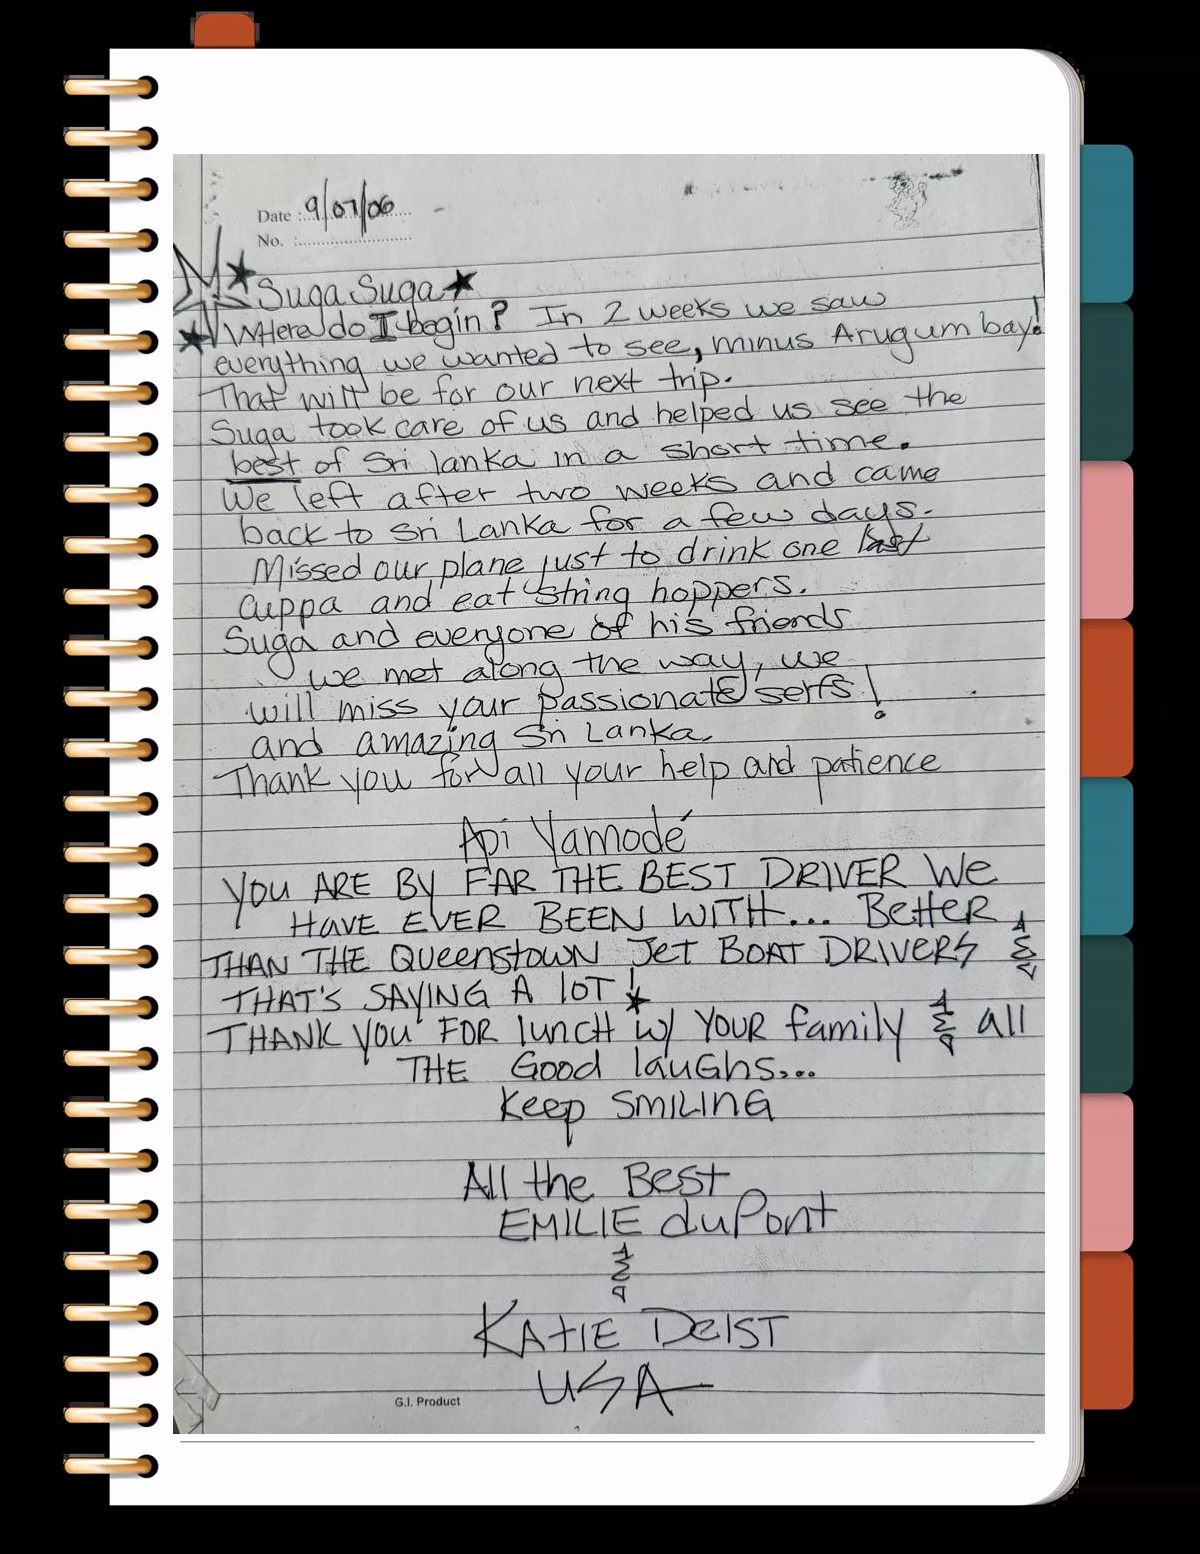 Date : 9/07/06
No. :
Suga Suga
Where do I begin? In 2 weeks we saw
everything we wanted to see, minus Arugum bay!
That will be for our next trip.
Suga took care of us and helped us see the
best of Sri lanka in a short time.
We left after two weeks and came
back to Sri Lanka for a few days.
Missed our plane just to drink one last
cuppa and eat string hoppers.
Suga and everyone of his friends
we met along the way, we
will miss your passionate serfs!
and amazing Sri Lanka
Thank you for all your help and patience
Api Yamodé
YOU ARE BY FAR THE BEST DRIVER We
HAVE EVER BEEN WITH... BeTTeR
THAN THE QueenSTOWN JeT BOAT DRIVERS AND
THAT'S SAYING A lOT!
THANK YOU FOR lunCH w/ YOUR family AND all
THE Good lauGHs...
Keep SMILING
All the Best
EMILIE duPont
AND
KATIE DeIST
USA
G.I. Product